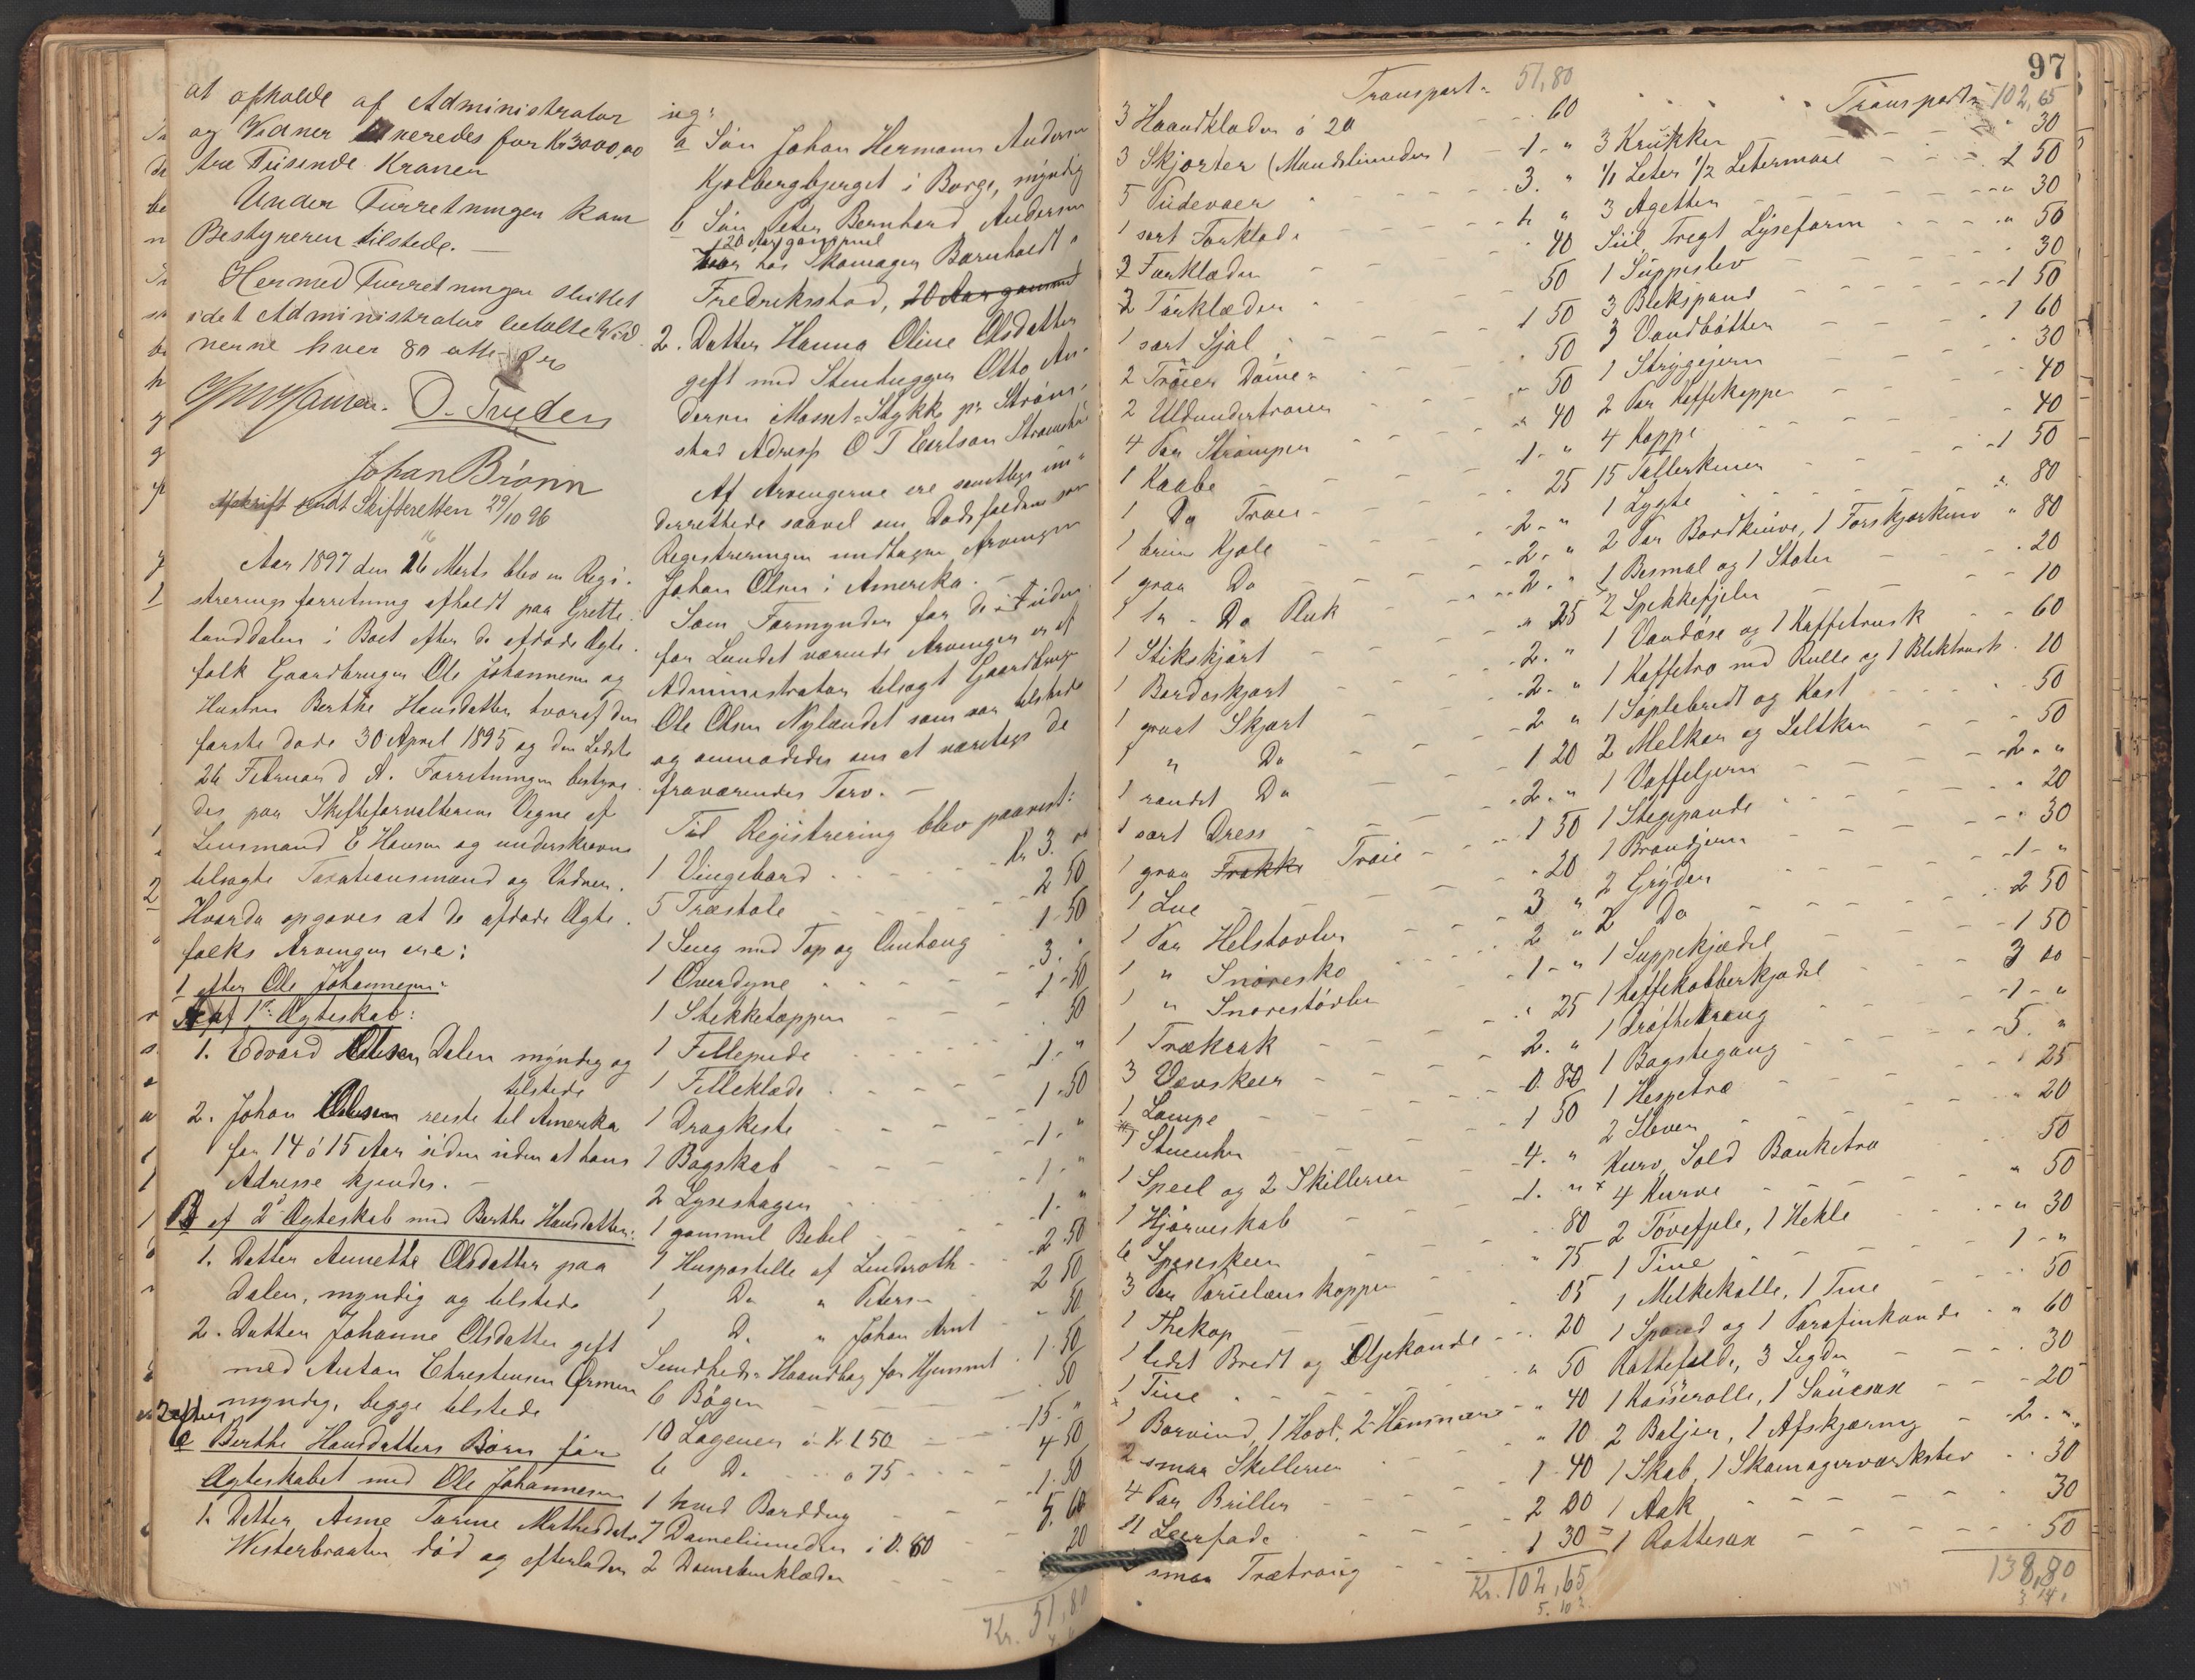 at afholde af Administrator
og Vidner neredes for Kr 3000,00
tre Tusende Kroner
Under Forretningen kom
Bestyreren tilstede.
Hermed Forretningen sluttet
idet Administrator betalte Vid
nerne hver 80 otti Øre
O. Tveden
Johan Brønn
Afskrift sendt Skifteretten 29/10 96
Aar 1897 den 16 Marts blev en Regi-
streringsforretning afholdt paa Grette-
landdalen i Boet efter de afdøde Ægte-
folk Gaardbruger Ole Johannesen og
Hustru Berthe Hansdatter hvoraf den
første døde 30 April 1895 og den Sidste
26 Februar d A. Forretningen bestyre-
des paa Skifteforvalterens Vegne af
Lensmand E Hansen og underskrevne
tilsagte Taxationsmænd og Vidner.
Hvorda opgaves at de afdøde Ægte-
folks Arvinger ere:
1 efter Ole Johannesen
A af 1ste Ægteskab:
1. Edvard Olesen Dalen myndig og
tilstede
2. Johan Olesen reiste til Amerika
for 14 á 15 Aar siden uden at hans
Adresse kjendes. -
B af 2det Ægteskab med Berthe Hansdatter:
1. Datter Annethe Olsdatter paa
Dalen, myndig og tilstede
2. Datter Johanne Olsdatter gift
med Anton Christensen Ormen
myndig, begge tilstede
2 efter
C Berthe Hansdatters Børn før
Ægteskabet med Ole Johannesen
1. Datter Anne Torine Mathisdatter
Westerbraaten død og efterlader
sig:
a Søn Johan Hermann Andersen
Kjølbergbjerget i Borge, myndig
b Søn Peter Bernhard Andersen
20 Aar gammel
hos Skomager Bærnholdt i
Fredriksstad, 20 Aar gammel
2. Datter Hanna Oline Olsdatter
gift med Stenhugger Otto An-
dersen Mosset Stykke pr Strøm-
stad Adresse O T Carlson Strømstad
Af Arvingerne ere samtlige un-
derrettede saavel om Dødsfaldene som
Registreringen undtagen Arvingen
Johan Olsen i Amerika. -
Som Formynder for de uden-
for Landet værende Arvinger er af
Administrator tilsagt Gaardbruger
Ole Olsen Nylandet som var tilstede
og anmodedes om at varetage de
fraværendes Tarv. -
Til Registrering blev paavist:
1 Vingebord - - Kr 3. "
5 Træstole - - 2 50
1 Seng med Top og Omhæng - 1-50
1 Overdyne - - 3. "
1 Stikketeppen - - 1-50
1 Fillepude - - 50
1 Filleklæde - - 1. "
1 Dragkiste - - 1-50
1 Bogskab - - 1. "
2 Lysestager - - 1. "
1 gammel Bibel - - 1. "
1 Huspostille af Linderoth - 2 50
1 Do " Petersen - 2 50
1 Do " Johan Arnt - " 50
Sundheds Haandbog for Hjemmet - 1 50
6 Bøger - - 50
10 Lagener á Kr 1.50 - 15. "
6 Do á 75 - - 4 50
1 hvid Borddug - - 1.50
7 Damelinneder á 0.80 - 5.60
2 Damebenklæder - - 20
Kr. 51,80
97
Transport = 51,80
3 Haandklæder á 20 - - 60
3 Skjorter (Mandslinneder) - 1- "
5 Pudevaer - - 3. "
1 sort Forklæde
2 Forklæder - - 40
2 Tørklæder - - 50
1 sort Sjal - - 1 50
2 Trøier Dame - - 50
2 Uldundertrøier - - 50
4 Par Strømper - - 40
1 Kaabe - - 1- "
1 Do Trøie - - 25
1 brun Kjole - - 2- "
1 graa Do - - 2. "
1 Do Pluk - - 2. "
1 Stikskjørt - - 25
1 Bordoskjørt - - 2. "
1 graat Skjørt - - 2. "
1 " Do - - 2 "
1 randet Do - - 1 20
1 sort Dress - - 2. "
1 graa Frakke Trøie - - 1 50
1 Lue - - 20
1 Par Helstøvler - - 3 "
1 " Snøresko - - 2 "
1 " Snørestøvler - - 1- "
1 Trækrak - - 25
3 Vævskeer - - 2. "
1 Lampe - - 0. 80
1 Stueuhr - - 1 50
1 Speil og 2 Skillerier - 4. "
1 Hjørneskab - - 1. "
6 Spiseskeer - - 80
3 Par Porcelænskopper - - 75
1 Thekop - - 05
1 lidet Bredt og Oljekande - - 20
1 Tine - - 50
1 Borvind, 1 Hovl, 2 Hammere - " 40
2 smaa Skillerier - - 10
4 Par Briller - - 1 40
11 Leerfade - - 2 20
smaa Trætraug - - 1 30
Kr. 102,65
Transport = 102,65
3 Krukker - - 30
1/1 Leter 1/2 Letermaal - - 2 50
3 Agetter - - 30
Siil Tregt Lyseform - - " 50
1 Suppeslev - - 30
3 Blikspand - - 1 50
3 Vandbøtter - - 1 60
1 Strygejern - - 30
2 Par Kaffekopper - - 40
4 Koppe - - 40
15 Tallerkener - - 1 50
1 Lygte - - 80
2 Par Bordknive, 1 Forskjærkniv " 80
1 Bismal og 1 Støter - - 20
2 Spekkefjeler - - 10
1 Vandøse og 1 Kaffetrusk - - 60
1 Kaffetro med Rulle og 1 Bliktrusk - 10
1 Søplebredt og Kost - - 50
2 Melkar og Saltkar - - 50
1 Vaffeljern - - 2- "
1 Stegpande - - 20
1 Brandjern - - 30
2 Gryder - - 1- "
2 Do - - 2 50
1 Suppekjædel - - 1 50
1 Kaffekobberkjædel - - 3 00
1 Drøftetraug - - 1- "
1 Bagstegang - - 5. "
1 Hespetræ - - 25
2 Slever - - 20
Kurv Sold Banketræ - - 50
4 Kurve - - " 50
2 Tøvefjele, 1 Hekle - - " 30
1 Tine - - 1- "
1 Melkekolle, 1 Tine - - 50
1 Spand og 1 Parafinkande - " 60
Rottefælde, 3 Segder - - 30
1 Kasserolle, 1 Sauesax - - 20
2 Baljer, 1 Afskjæring - 2. "
1 Skab, 1 Skomagerværksted - - 30
1 Aak - - 30
1 Rottesax - - 50
138,80